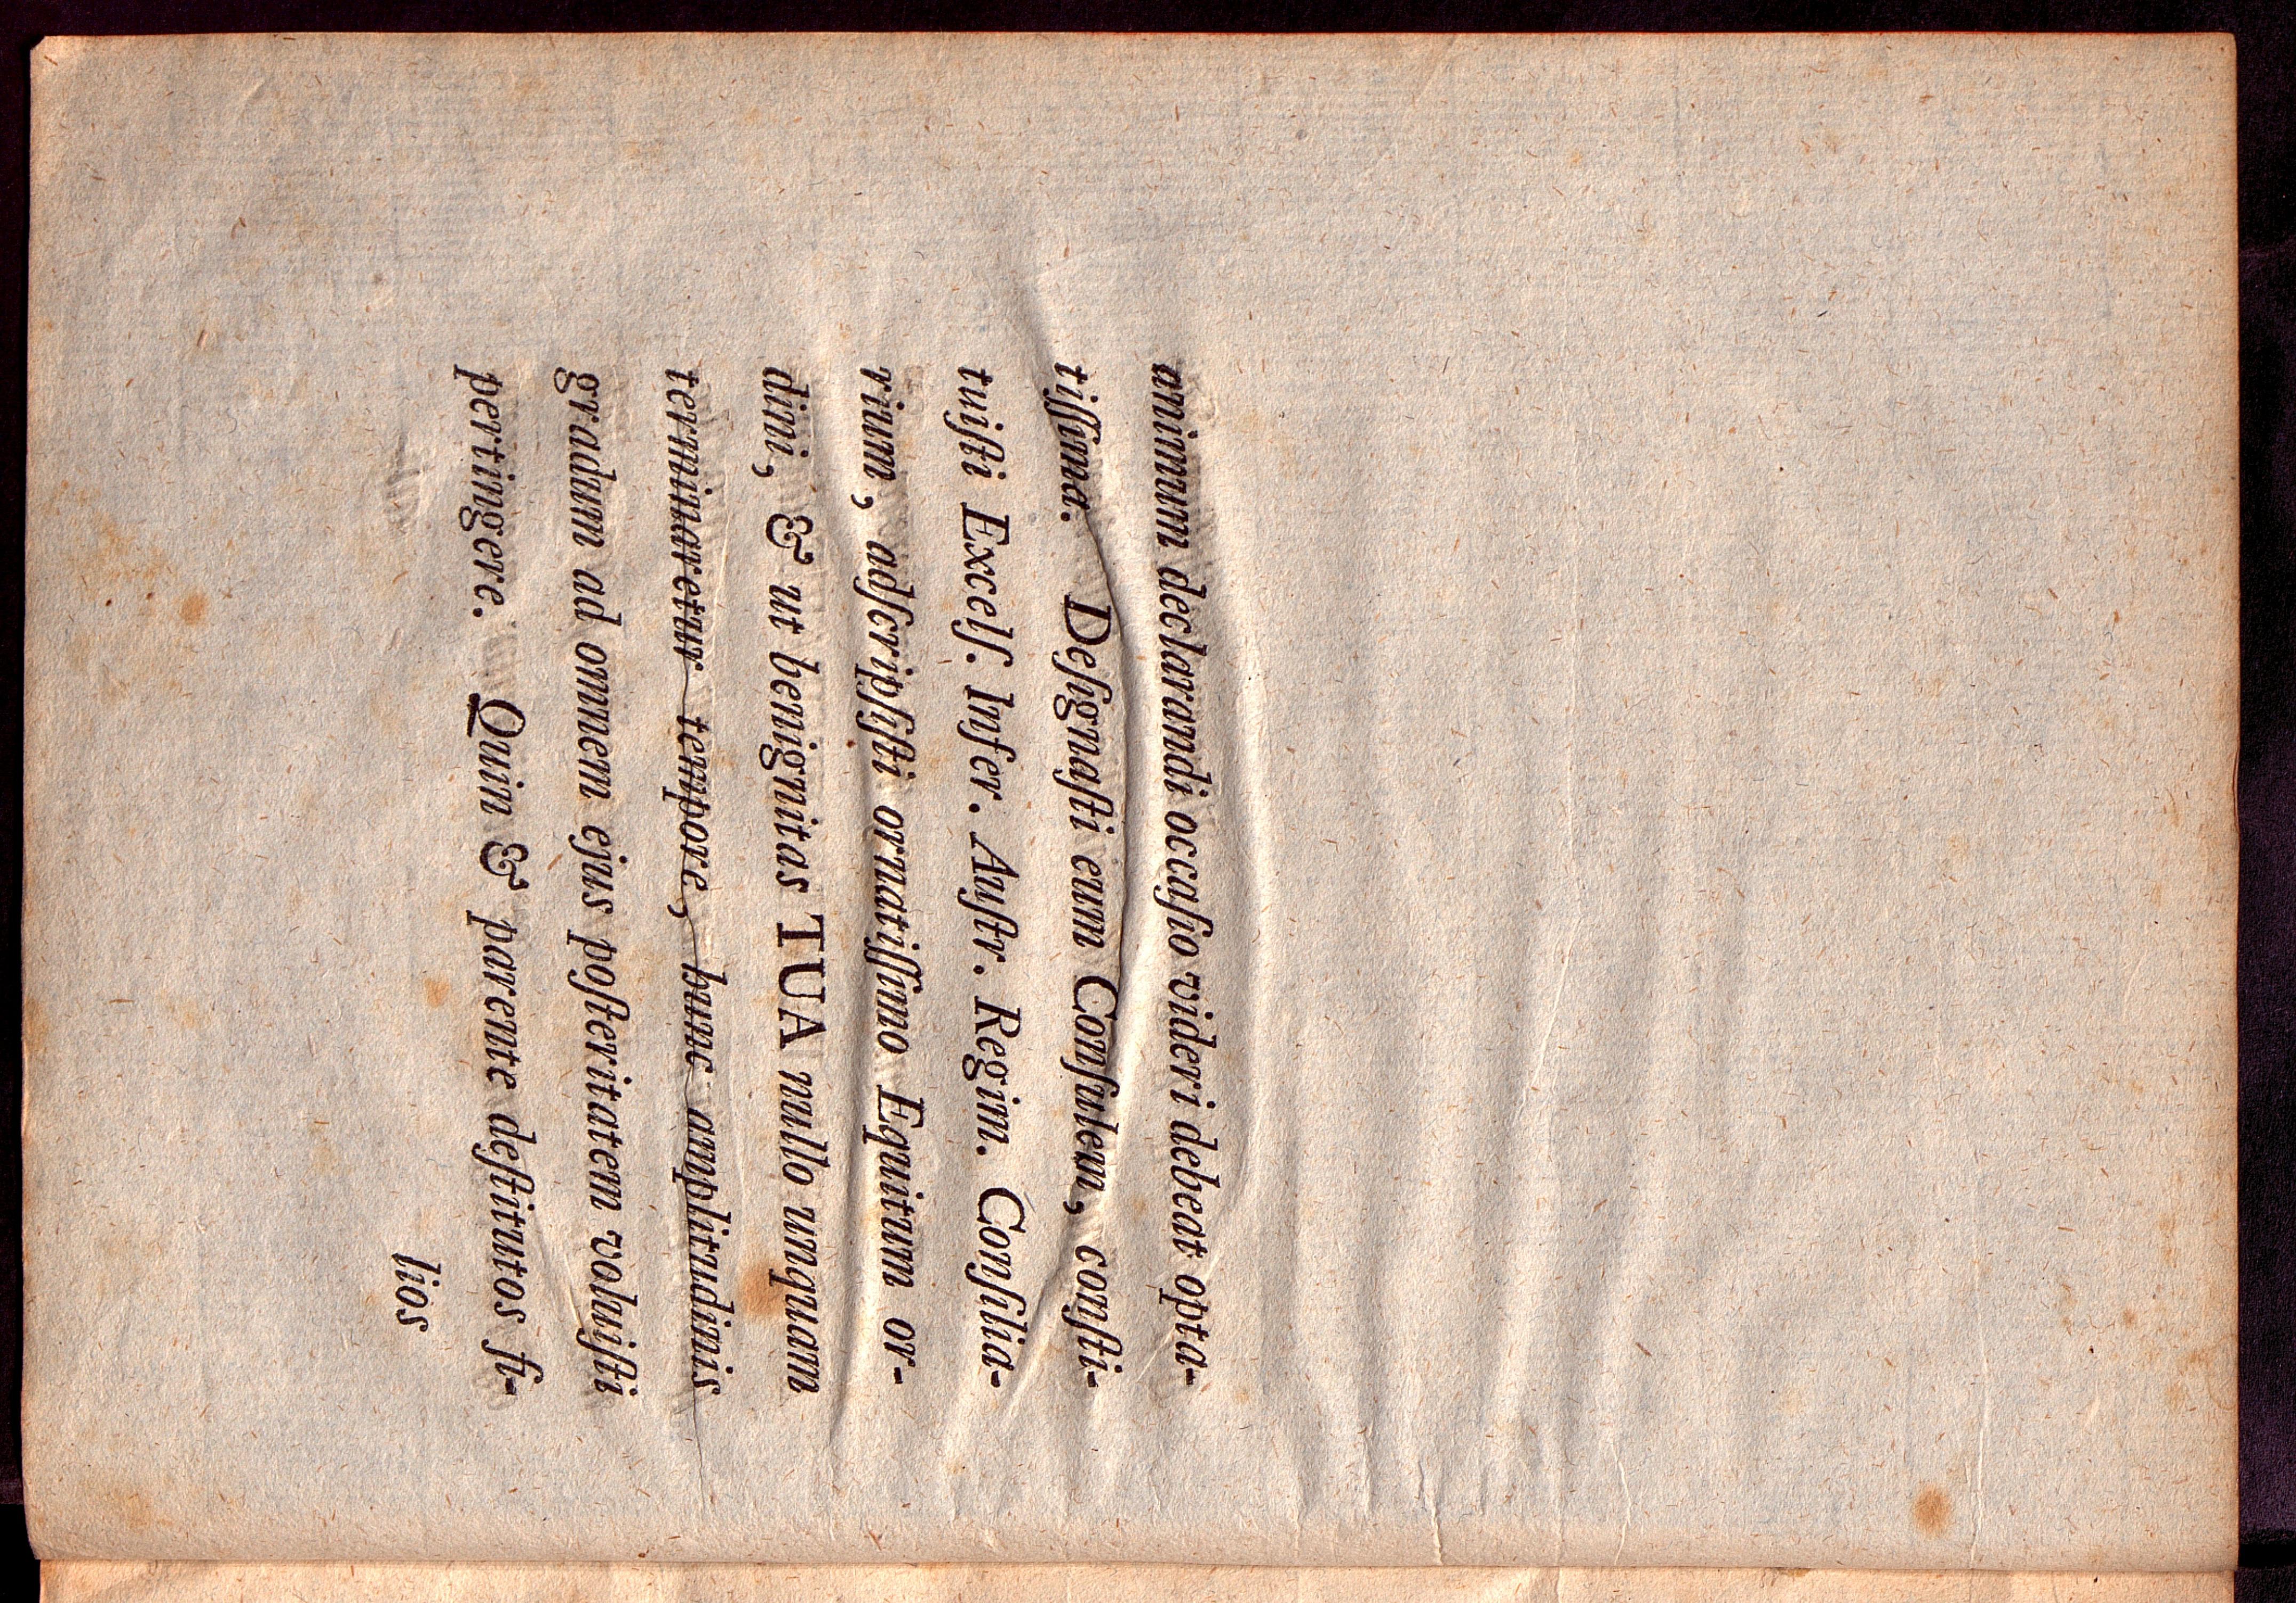 animum declarandi occaſio videri debeat opta-
tiſſima. Deſignaſti eum Conſulem, conſti-
tuiſti Excelſ. Infer. Auſtr. Regim. Conſilia-
rium, adſcripſiſti ornatiſſimo Equitum or-
dini, & ut benignitas TUA nullo unquam
terminaretur tempore, hunc amplitudinis
gradum ad omnem ejus poſteritatem voluiſti
pertingere. Quin & parente deſtitutos fi-
lios